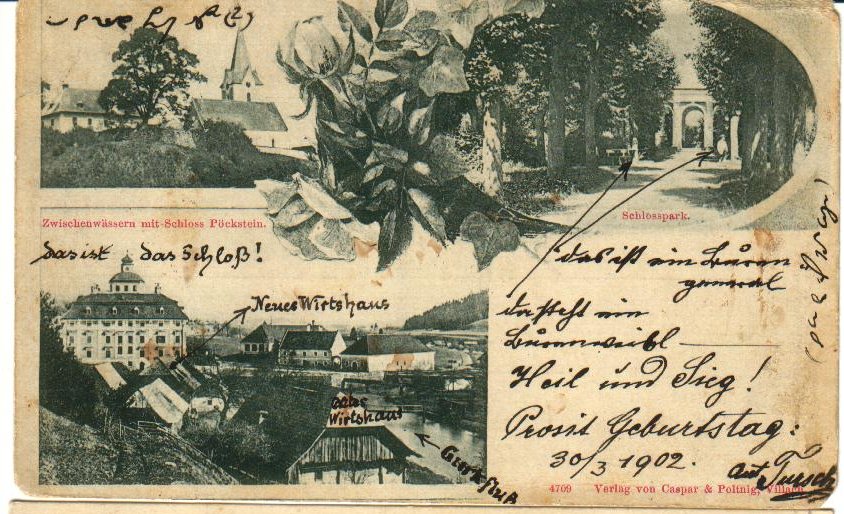 Zwischenwässern mit Schloss Pöckstein.
Schlosspark.
das ist das Schloß!
Neues Wirtshaus
altes
Wirtshaus
das ist ein Buren
general
da steht ein
Burenweibl
Heil und Sieg!
Prosit Geburtstag:
30/3 1902.
4709 Verlag von Caspar & Poltnig, Villach